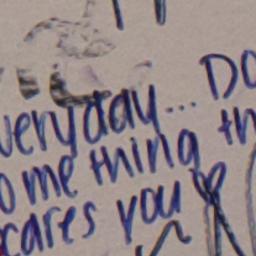 veryday... Do
omething th
cares you